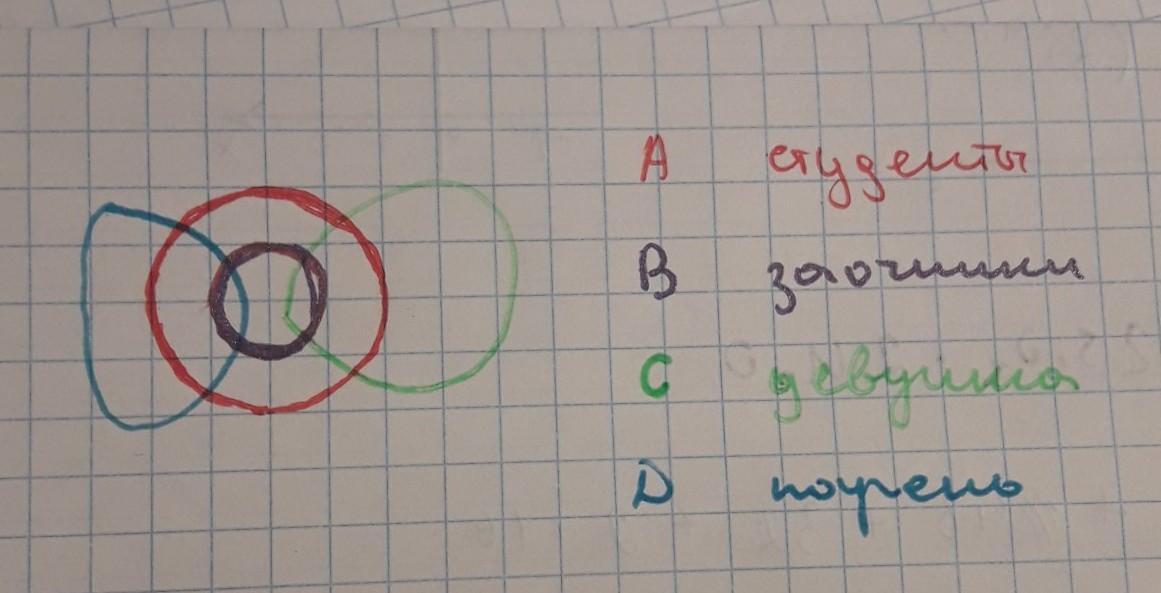 A студенты
B заочники
C девушка
D парень